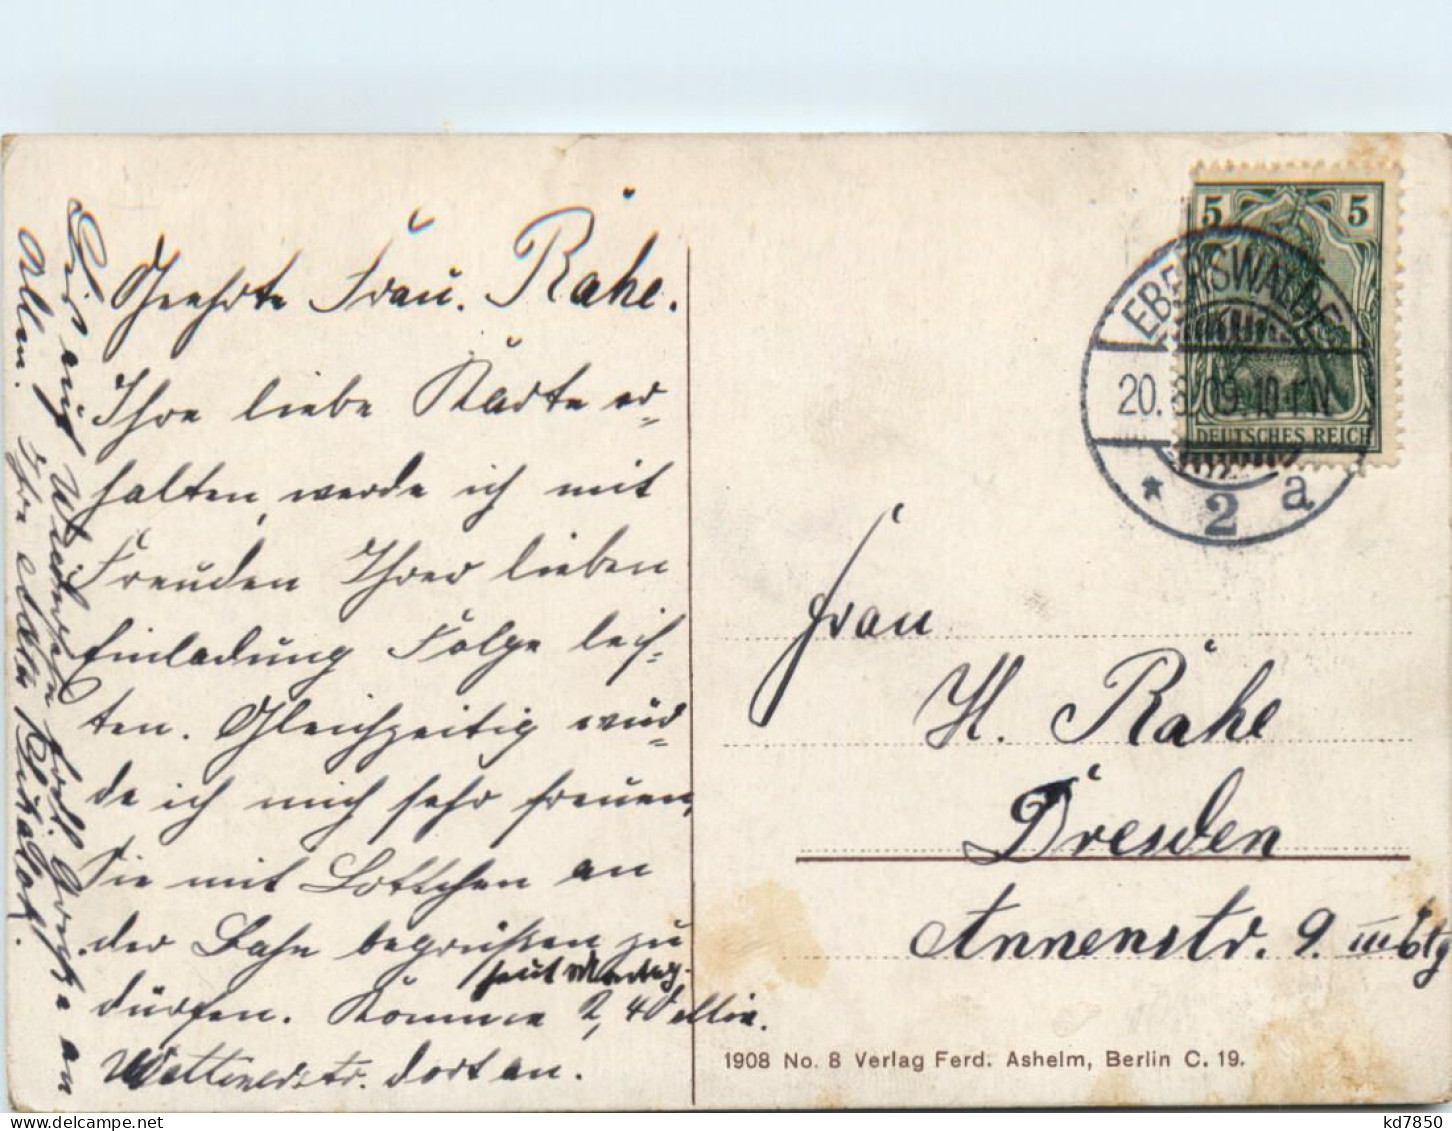 Geehrte Frau. Rähe.
Ihre liebe Karte er=
halten, werde ich mit
Freuden Ihrer lieben
Einladung Folge leis=
ten. Gleichzeitig wür=
de ich mich sehr freuen,
Sie mit Lottchen an
der Bahn begrüßen zu
dürfen. Komme 2,4
Wettinerstr. dort an.
Bis auf Wiedersehn herzl. Grüße an
Allen. Ihre
5 5
DEUTSCHES REICH
EBERSWALDE
20. 8. 09. 10-11N
* 2 a
Frau
H. Rähe
Dresden
Annenstr. 9. III
1908 No. 8 Verlag Ferd. Ashelm, Berlin C. 19.
kd7850